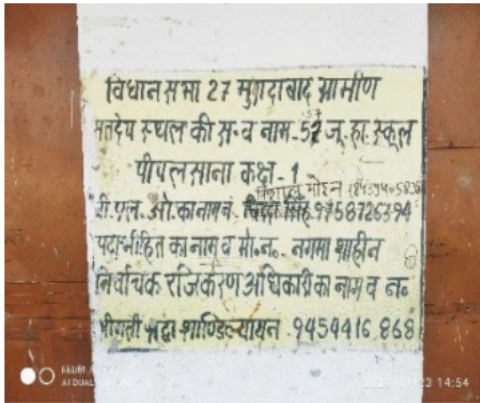 विधान सभा 27 मुरादाबाद ग्रामीण
मतदेय स्थल की स.व नाम-57 जू. हा. स्कूल
पीपलसाना कक्ष-1
विशाल मोहन
वी.एल.ओ.का नाम व सिंह 9758726394
पदाभीहित का नाम व मो.न. नगमा शाहीन
निर्वाचक रजिकरण अधिकारी का नाम व न.
श्रीमती श्रद्धा शाण्डिल्यायन .9454416868
REDMI
AI DUAL
23 14:54